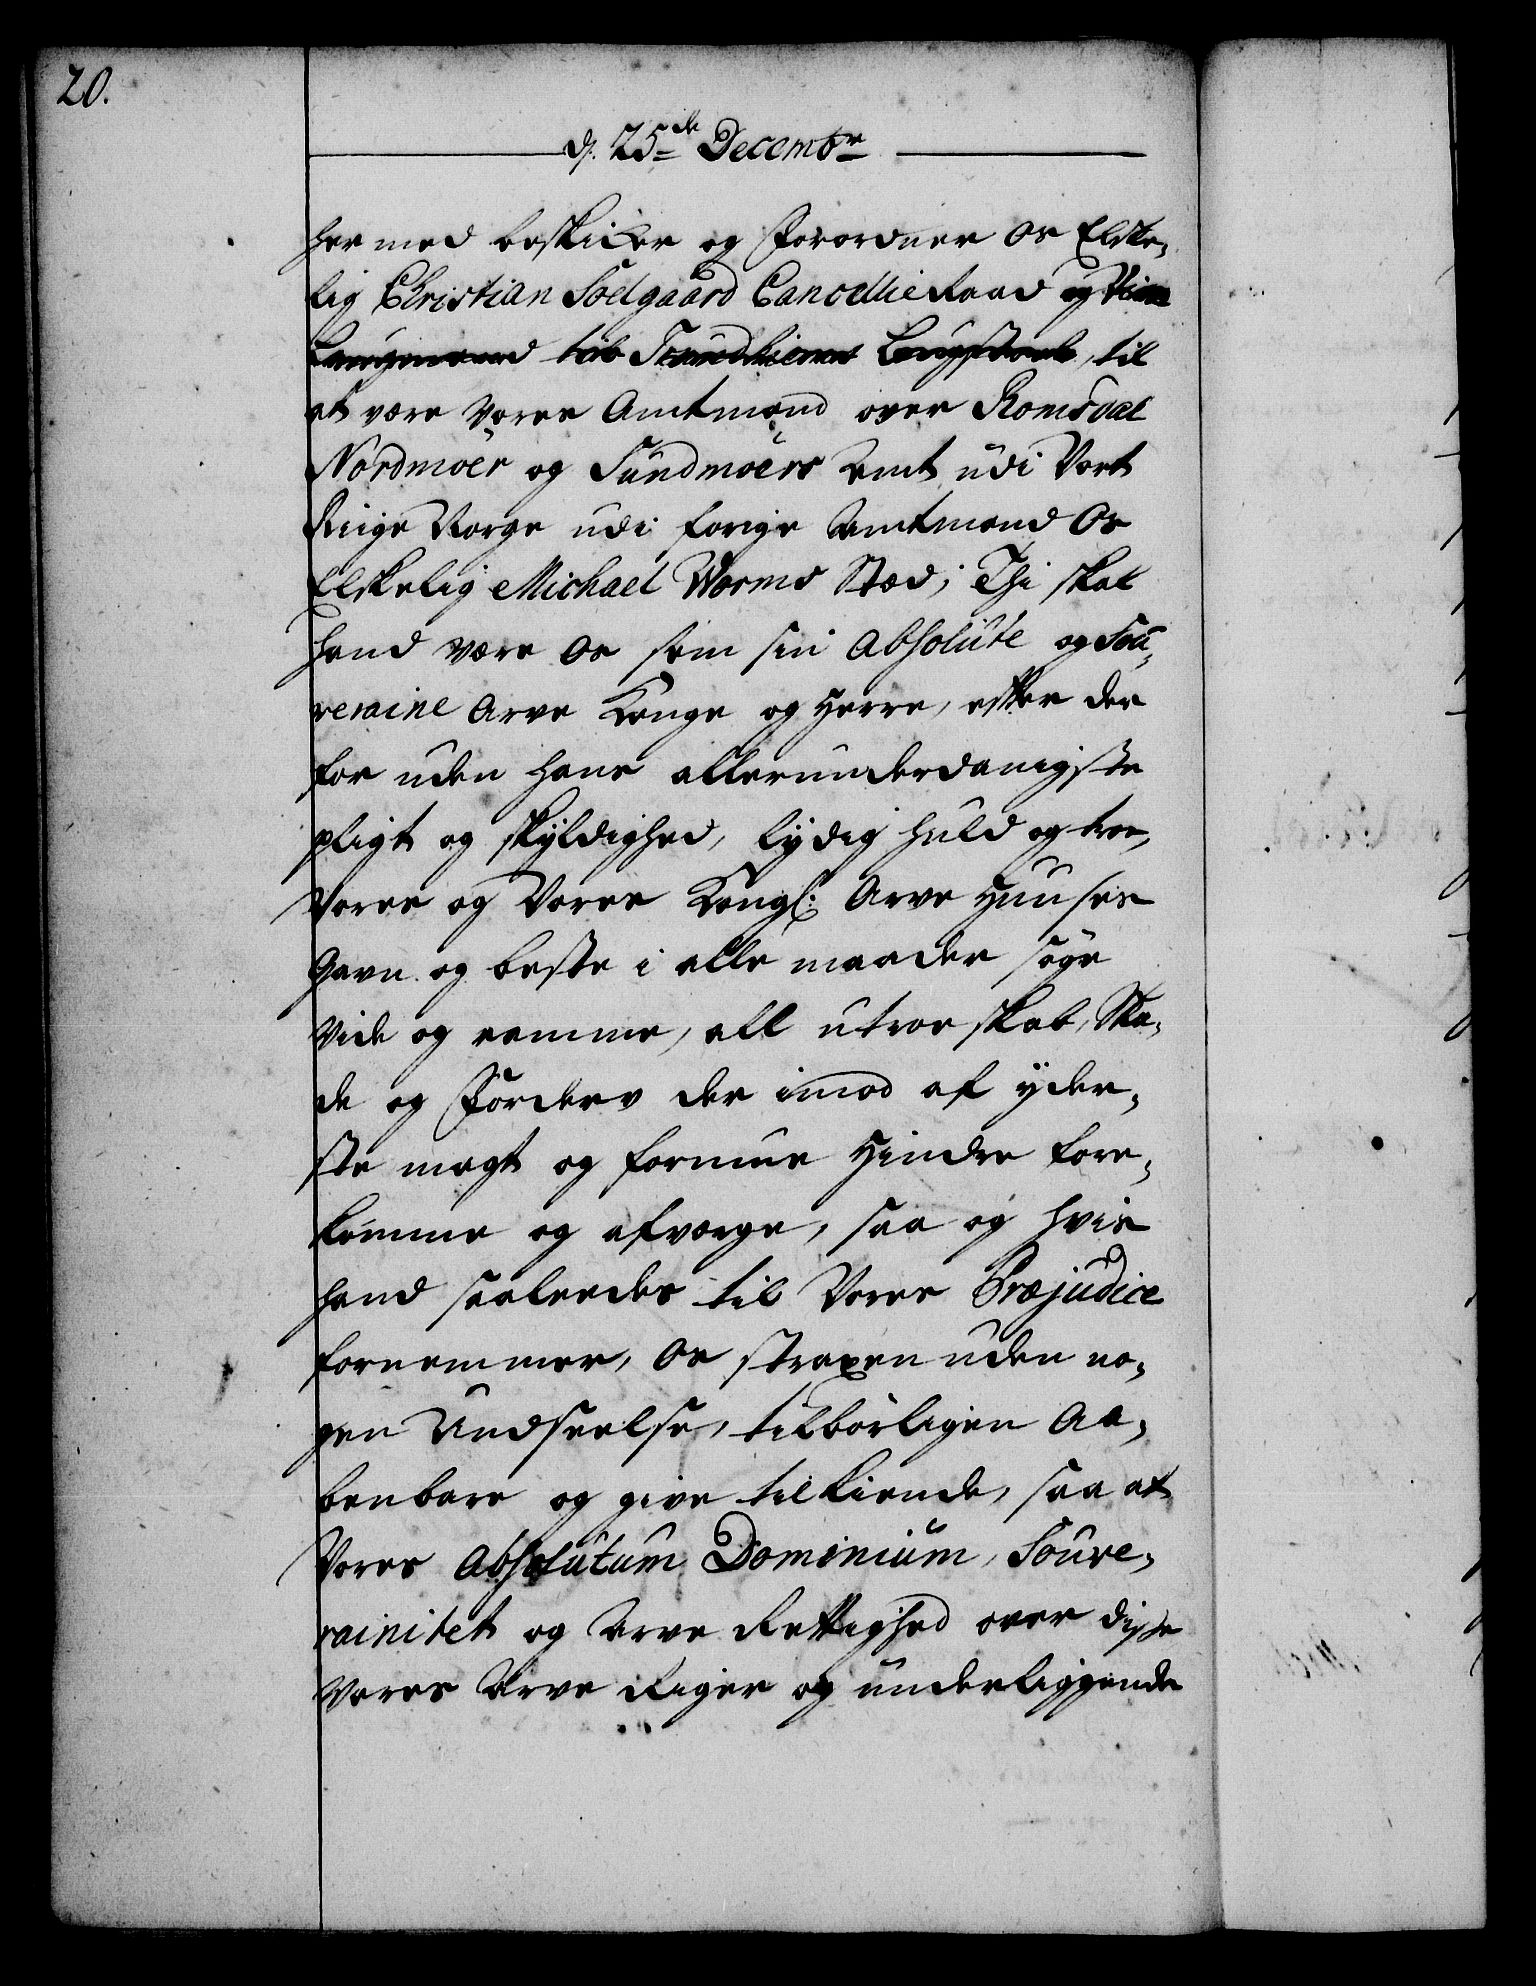 20.
d. 25de Decembr
her med beskicker og Forordner Os Elske,
lig Christian Soelgaard Cancellie Raad og Vice
Laugmand til Trundhiems Laugstoel, til
at være Vores Amtmand over Romsdal
Nordmöer og Sundmöers Amt udi Vort
Riige Norge udi forige Amtmand Os
Elskelig Michael Worms Stæd; Thi skal
hand være Os som sin Absolute og Sou,
veraine Arve Konge og Herre, efter der
for uden hans allerunderdanigste
pligt og skyldighed, lydig huld og troe,
Vores og Vores Kongl: Arve Huuses
Gavn og beste i alle maader söge
Vide og ramme, all utroeskab, Ska,
de og Forderv der imod af yder,
ste magt og formue Hindre fore,
komme og afværge, saa og hvis
hand saaleedes til Vores Præjudice
fornemmer, Os straxen uden no,
gen Undseelse, tilbörligen Aa,
benbare og give tilkiende, saa at
Vores Absolutum Dominium, Souve,
rainitet og Arve Rettighed over disse
Vores Arve Riger og underliggende